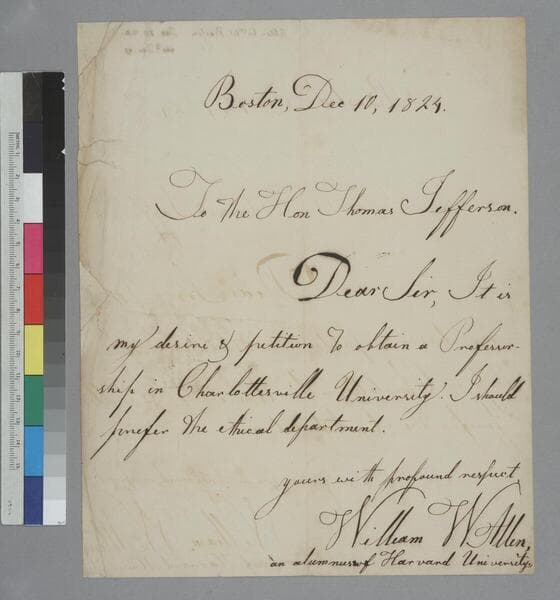 Boston, Dec 10, 1824.
To the Hon Thomas Jefferson.
Dear Sir, It is
my desire & petition to obtain a Professor-
ship in Charlottesville University. I should
prefer the ethical department.
yours with profound respect,
William W Allen,
an alumnus of Harvard University.